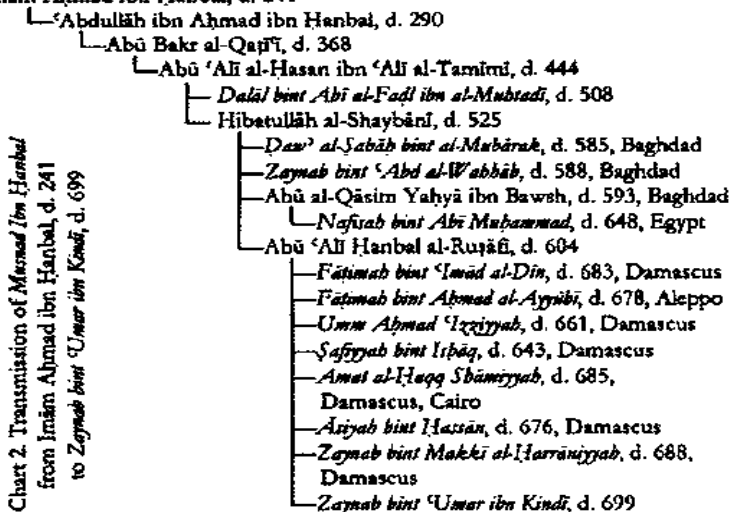 ʿAbdullāh ibn Aḥmad ibn Ḥanbal, d. 290
Abū Bakr al-Qaṭīʿī, d. 368
Abū ʿAlī al-Ḥasan ibn ʿAlī al-Tamīmī, d. 444
Dalāl bint Abī al-Faḍl ibn al-Muhtadī, d. 508
Hibatullāh al-Shaybānī, d. 525
Ḍawʾ al-Ṣabāḥ bint al-Mubārak, d. 585, Baghdad
Zaynab bint ʿAbd al-Wahhāb, d. 588, Baghdad
Abū al-Qāsim Yaḥyā ibn Bawsh, d. 593, Baghdad
Nafīsah bint Abī Muḥammad, d. 648, Egypt
Abū ʿAlī Ḥanbal al-Ruṣāfī, d. 604
Fāṭimah bint ʿImād al-Dīn, d. 683, Damascus
Fāṭimah bint Aḥmad al-Ayyūbī, d. 678, Aleppo
Umm Aḥmad ʿIzziyyah, d. 661, Damascus
Ṣafiyyah bint Isḥāq, d. 643, Damascus
Amat al-Ḥaqq Shāmiyyah, d. 685,
Damascus, Cairo
Āsiyah bint Ḥassān, d. 676, Damascus
Zaynab bint Makkī al-Ḥarrāniyyah, d. 688,
Damascus
Zaynab bint ʿUmar ibn Kindī, d. 699
Chart 2. Transmission of Musnad Ibn Ḥanbal
from Imām Aḥmad ibn Ḥanbal, d. 241
to Zaynab bint ʿUmar ibn Kindī, d. 699